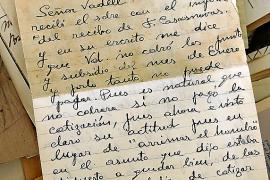 Señor Vadell
recibí el sobre con el
del recibo de J. Casasnovas
y en su escrito me dice.
que Vd. no cobró los puntos
y subsidio del mes de Enero
y por lo tanto no puede
pagar. Pues es natural que
no cobrara si no pagó la
cotización, pues ahora existe
claro su actitud pues en
lugar de "arrimar el hombro"
en el asunto que dijo estaba
dispuesto a quedar bien, de las
de cotizar